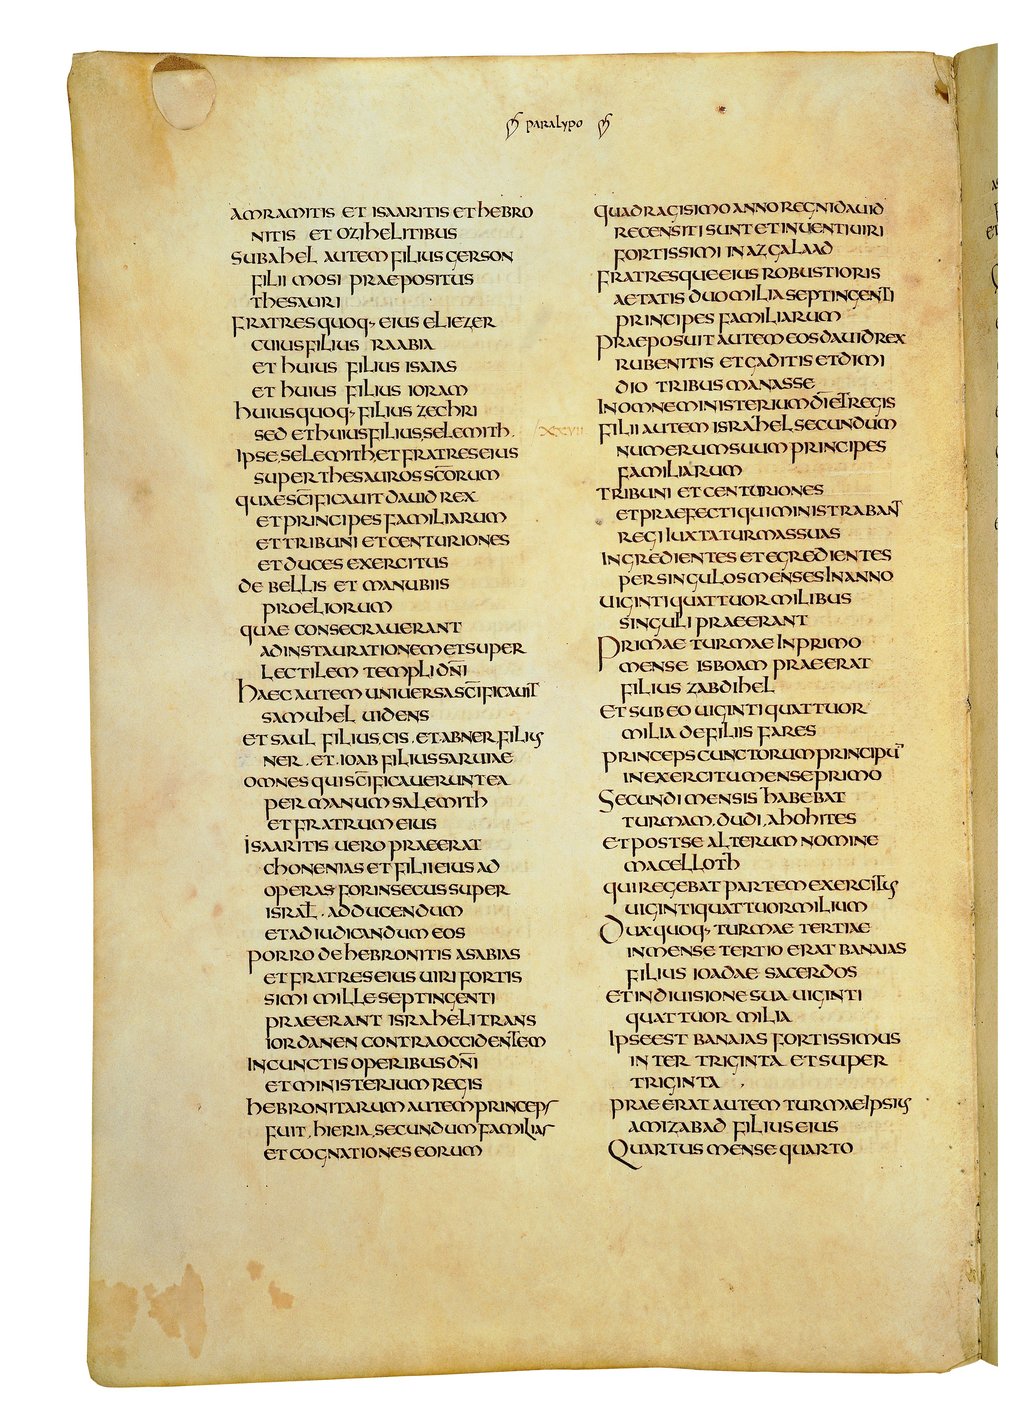 paralypo
AMRAMITIS ET ISAARITIS ET hEBRO
NITIS ET OZIhELITIBUS
SUBAhEL AUTEM FILIUS GERSON
FILII MOSI PRAEPOSITUS
ThESAURI
FRATRES QUOQ, EIUS ELIEZER
CUIUS FILIUS RAABIA
ET hUIUS FILIUS ISAIAS
ET hUIUS FILIUS IORAM
hUIUS QUOQ, FILIUS ZEChRI
SED ET hUIUS FILIUS, SELEMITh.
IPSE, SELEMITh, ET FRATRES EIUS
SUPER ThESAUROS SC̄ORUM
QUAE SC̄IFICAUIT DAUID REX
ET PRINCIPES FAMILIARUM
ET TRIBUNI ET CENTURIONES
ET DUCES EXERCITUS
DE BELLIS ET MANUBIIS
PROELIORUM
QUAE CONSECRAUERANT
AD INSTAURATIONEM ET SUPER
LECTILEM TEMPLI DN̄I
hAEC AUTEM UNIUERSA SC̄IFICAUIT
SAMUhEL UIDENS
ET SAUL FILIUS, CIS, ET ABNER, FILIUS
NER, ET, IOAB FILIUS SARUIAE
OMNES QUI SC̄IFICAUERUNT EA
PER MANUM SALEMITh
ET FRATRUM EIUS
ISAARITIS UERO PRAEERAT
ChONENIAS ET FILII EIUS AD
OPERAS FORINSECUS SUPER
ISRAL̄, AD DUCENDUM
ET AD IUDICANDUM EOS
PORRO DE hEBRONITIS ASABIAS
ET FRATRES EIUS UIRI FORTIS
SIMI MILLE SEPTINGENTI
PRAEERANT ISRAhELI TRANS
IORDANEN CONTRA OCCIDENTEM
IN CUNCTIS OPERIBUS DN̄I
ET MINISTERIUM REGIS
hEBRONITARUM AUTEM PRINCEPS
FUIT, hIERIA, SECUNDUM FAMILIAS
ET COGNATIONES EORUM
QUADRAGISIMO ANNO REGNI DAUID
RECENSITI SUNT ET INUENTI UIRI
FORTISSIMI IN AZGALAAD
FRATRESQUE EIUS ROBUSTIORIS
AETATIS DUO MILIA SEPTINGENTI
PRINCIPES FAMILIARUM
PRAEPOSUIT AUTEM EOS DAUID REX
RUBENITIS ET GADITIS ET DIMI
DIO TRIBUS MANASSE
IN OMNE MINISTERIUM DI̅ ET REGIS
XXVII
FILII AUTEM ISRAhEL SECUNDUM
NUMERUM SUUM PRINCIPES
FAMILIARUM
TRIBUNI ET CENTURIONES
ET PRAEFECTI QUI MINISTRABANT
REGI IUXTA TURMAS SUAS
INGREDIENTES ET EGREDIENTES
PER SINGULOS MENSES IN ANNO
UIGINTI QUATTUOR MILIBUS
SINGULI PRAEERANT
PRIMAE TURMAE IN PRIMO
MENSE ISBOAM PRAEERAT
FILIUS ZABDIhEL
ET SUB EO UIGINTI QUATTUOR
MILIA DE FILIIS FARES
PRINCEPS CUNCTORUM PRINCIPŪ
IN EXERCITU MENSE PRIMO
SECUNDI MENSIS hABEBAT
TURMAM, DUDI, AhOhITES
ET POST SE ALTERUM NOMINE
MACELLOTh
QUI REGEBAT PARTEM EXERCITUS
UIGINTI QUATTUOR MILIUM
DUX QUOQ, TURMAE TERTIAE
IN MENSE TERTIO ERAT BANAIAS
FILIUS IOADAE SACERDOS
ET IN DIUISIONE SUA UIGINTI
QUATTUOR MILIA
IPSE EST BANAIAS FORTISSIMUS
INTER TRIGINTA ET SUPER
TRIGINTA
PRAEERAT AUTEM TURMAE IPSIUS
AMIZABAD FILIUS EIUS
QUARTUS MENSE QUARTO